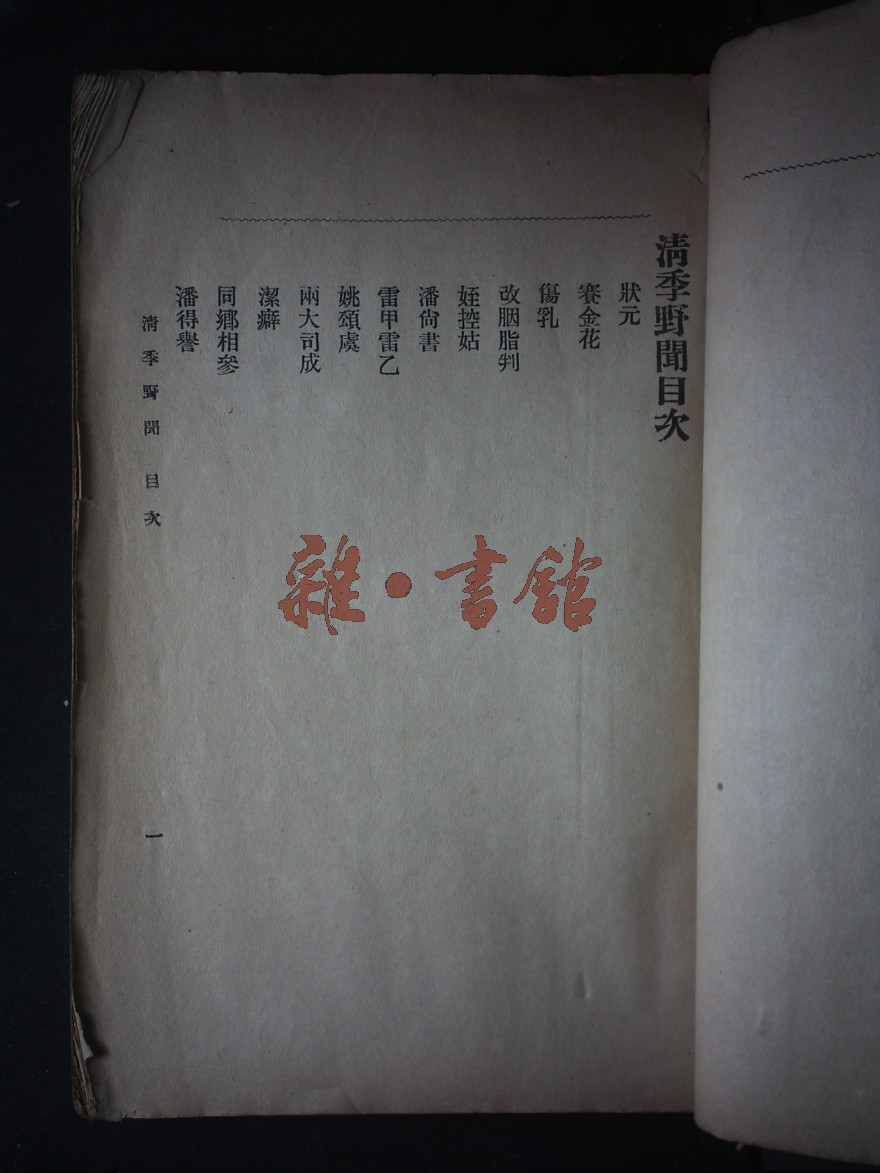 清季野聞目次
狀元
賽金花
傷乳
改胭脂判
姪控姑
潘尙書
雷甲雷乙
姚頌虞
兩大司成
潔癖
同鄕相參
潘得譽
清季野聞 目次
一
雜·書館